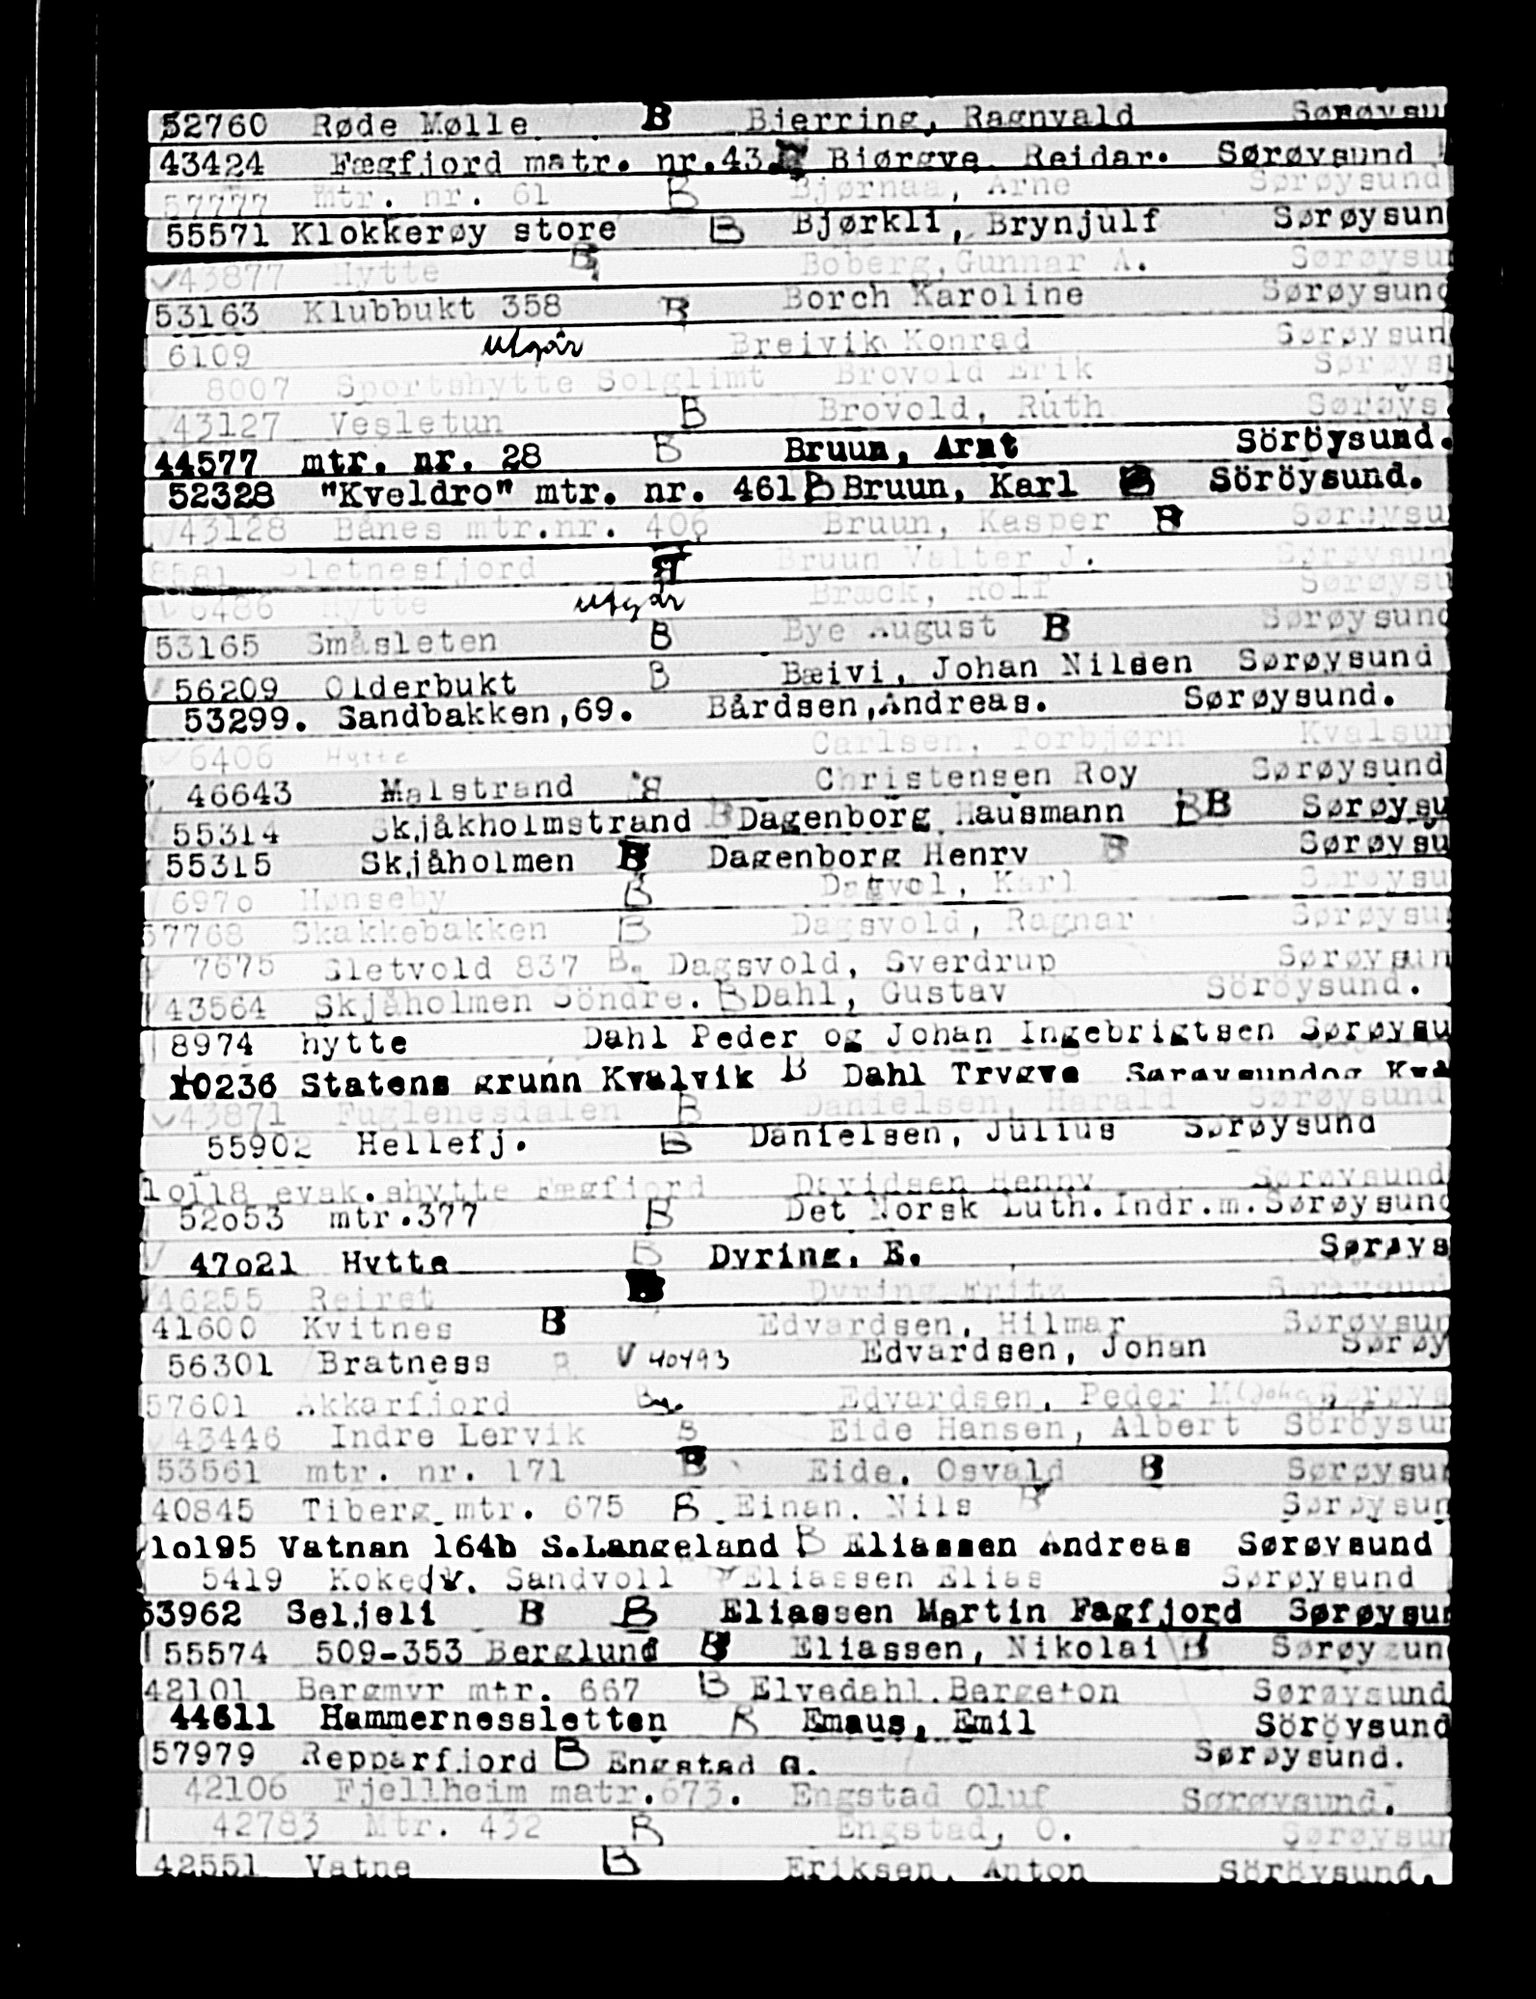 52760 Røde Mølle B Bjerring, Ragnvald Sørøysu
43424 Fægfjord matr. nr.43. Bjørgve Reidar. Sørøysund
57777 Mtr. nr. 61 B Bjørnaa, Arne Sørøysund
55571 Klokkerøy store B Bjørkli, Brynjulf Sørøysun
43877 Hytte B Boberg, Gunnar A. Sørøysu
53163 Klubbukt 358 B Borch Karoline Sørøysund
6109 utgår Breivik Konrad Sørøysund
8007 Sportshytte Solglimt Brovold Erik Sørøys
43127 Vesletun B Brovold, Ruth Sørøys
44577 mtr. nr. 28 B Bruun, Arnt Söröysund.
52328 "Kveldro" mtr. nr. 461 B Bruun, Karl B Söröysund.
43128 Bånes mtr.nr. 406 Bruun, Kasper B Sørøysu
8581 Sletnesfjord B Bruun Valter J. Sørøysun
6486 Hytte utgår Bræck, Rolf Sørøysu
53165 Småsleten B Bye August B Sørøysund
56209 Olderbukt B Bæivi, Johan Nilsen Sørøysund
53299. Sandbakken,69. Bårdsen,Andreas. Sørøysund.
6406 Hytte Carlsen, Torbjørn Kvalsun
46643 Malstrand B Christensen Roy Sørøysund
55314 Skjåkholmstrand B Dagenborg Hausmann BB Sørøysu
55315 Skjåholmen B Dagenborg Henry B Sørøysu
697o Hønseby B Dagvol, Karl Sørøysu
57768 Skakkebakken B Dagsvold, Ragnar Sørøysu
7675 Sletvold 837 B. Dagsvold, Sverdrup Sørøysun
43564 Skjåholmen Söndre. B Dahl, Gustav Söröysund.
8974 hytte Dahl Peder og Johan Ingebrigtsen Sørøysu
10236 Statens grunn Kvalvik B Dahl Trygve Sørøysundog Kva
43871 Fuglenesdalen B Danielsen, Harald Sørøysund
55902 Hellefj. B Danielsen, Julius Sørøysund
1o118 evak.shytte Fægfjord Davidsen Henny Sørøysund
52o53 mtr.377 B Det Norsk Luth.Indr.m.Sørøysund
47o21 Hytte B Dyring, E. Sørøys
46255 Reiret Dyring Fritz Sørøysund
41600 Kvitnes B Edvardsen, Hilmar Sørøysun
56301 Bratness B V 40493 Edvardsen, Johan Sørøy
57601 Akkarfjord B Edvardsen, Peder M Sørøys
43446 Indre Lervik B Eide Hansen, Albert Söröysun
53561 mtr. nr. 171 B Eide, Osvald B Sørøysun
40845 Tiberg mtr. 675 B Einan, Nils B Sørøysun
1o195 Vatnan 164b S.Langeland B Eliassen Andreas Sørøysund
5419 Kokedv. Sandvoll Eliassen Elias Sørøysund
53962 Seljeli B B Eliassen Martin Fagfjord Sørøysun
55574 509-353 Berglund B Eliassen, Nikolai B Sørøysun
42101 Bergmyr mtr. 667 B Elvedahl, Bergeton Sørøysund
44611 Hammernessletten B Emaus, Emil Söröysund
57979 Repparfjord B Engstad O. Sørøysund.
42106 Fjellheim matr.673. Engstad Oluf Sørøysund.
42783 Mtr. 432 B Engstad, O. Sørøysun
42551 Vatne B Eriksen, Anton Söröysund.